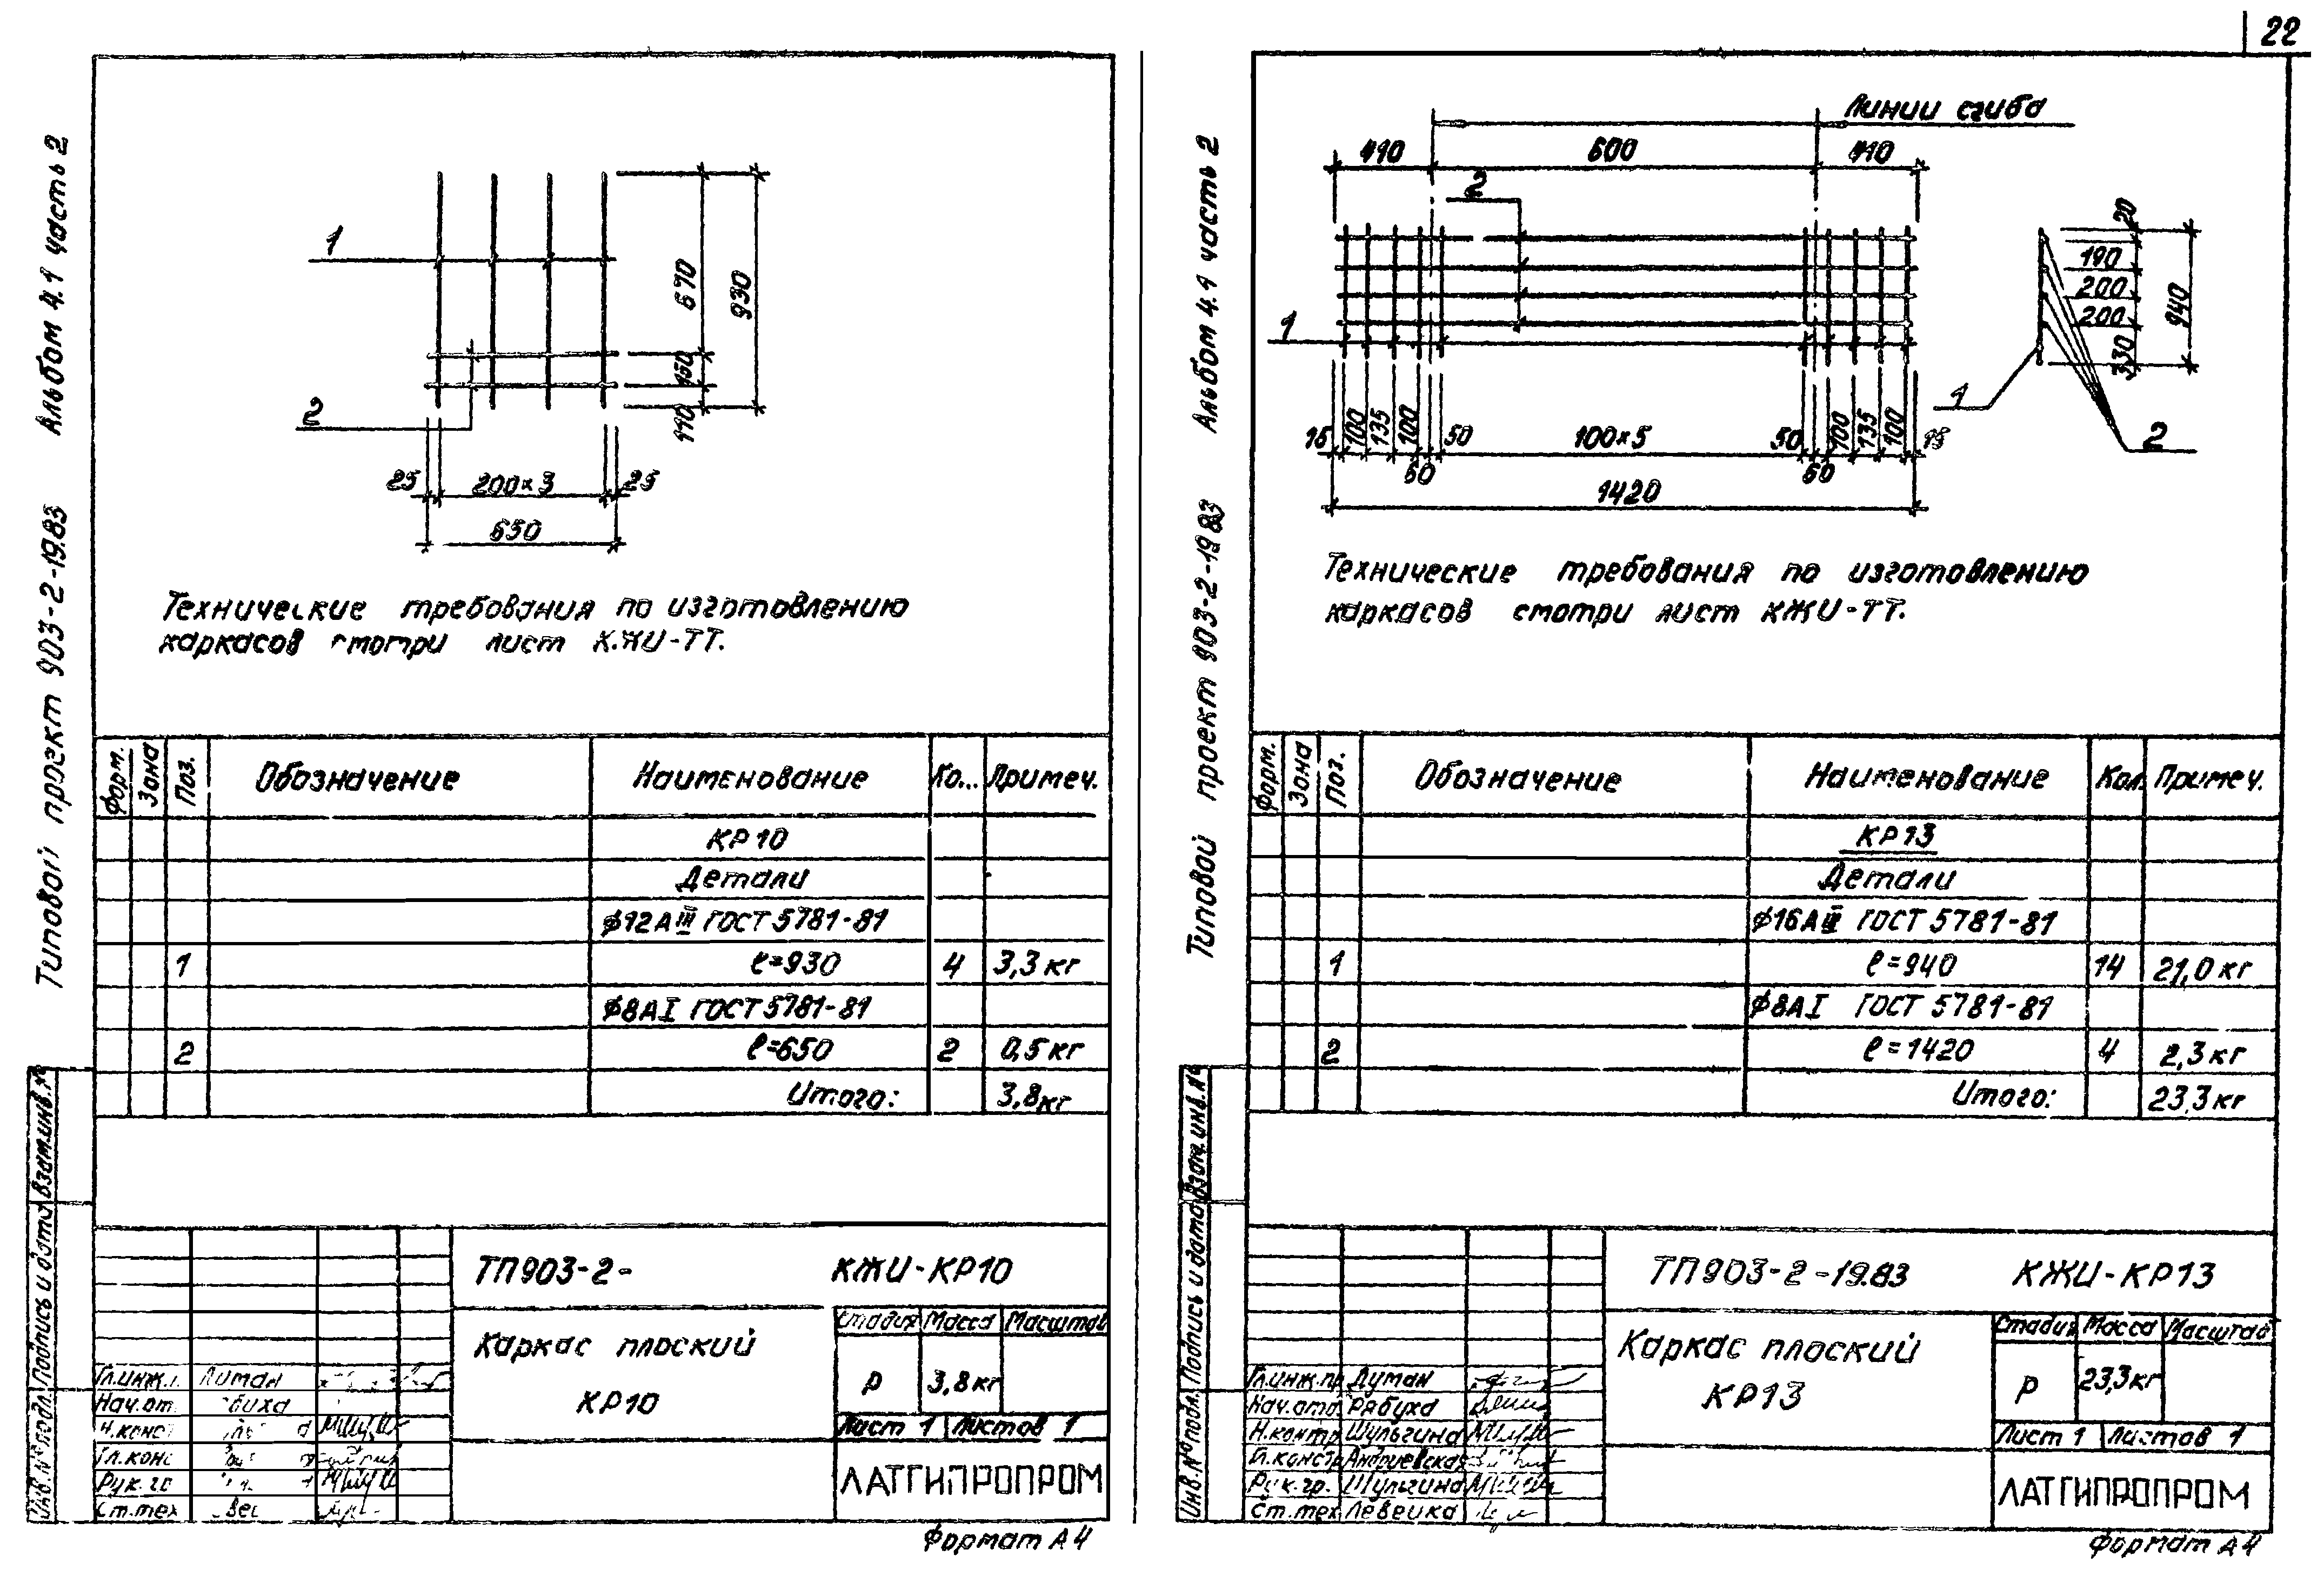 22
Альбом 4.1 часть 2
Типовой проект 903-2-19.83
1
2
670
930
150
110
25
200×3
25
650
Технические требования по изготовлению
каркасов смотри лист КЖИ-ТТ.
Форм. Зона Поз. Обозначение Наименование Ко... Примеч.
КР10
Детали
φ12АIII ГОСТ 5781-81
1 ℓ=930 4 3,3 кг
φ8АI ГОСТ 5781-81
2 ℓ=650 2 0,5 кг
Итого: 3,8 кг
Инв.№ подл. Подпись и дата Взам.инв.№
ТП903-2- КЖИ-КР10
Каркас плоский
КР10
Стадия Масса Масштаб
Р 3,8 кг
Лист 1 Листов 1
ЛАТГИПРОПРОМ
Гл.инж.
Нач.от.
Н.конс
Гл.конс
Рук.гр
Ст.тех
Формат А4
Альбом 4.1 часть 2
Типовой проект 903-2-19.83
Линии сгиба
410 600 410
2
1
20
190
200
200
330
940
1
2
15 100 135 100 50 100×5 50 100 135 100 15
60 60
1420
Технические требования по изготовлению
каркасов смотри лист КЖИ-ТТ.
Форм. Зона Поз. Обозначение Наименование Кол. Примеч.
КР13
Детали
φ16АIII ГОСТ 5781-81
1 ℓ=940 14 21,0 кг
φ8АI ГОСТ 5781-81
2 ℓ=1420 4 2,3 кг
Итого: 23,3 кг
Инв.№ подл. Подпись и дата Взам.инв.№
ТП903-2-19.83 КЖИ-КР13
Каркас плоский
КР13
Стадия Масса Масштаб
Р 23,3 кг
Лист 1 Листов 1
ЛАТГИПРОПРОМ
Гл.инж.пр Думан
Нач.отд. Рябуха
Н.контр Шульгина
Гл.констр Андриевская
Рук.гр. Шульгина
Ст.тех Левеика
Формат А4